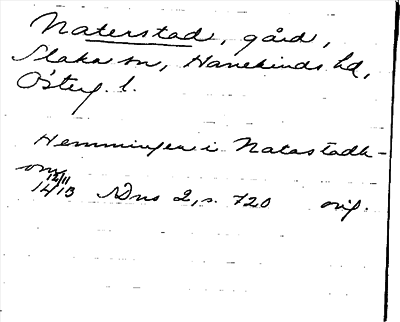 Naterstad, gård,
Slaka sn, Hanekinds hd,
Österg. l.
Hemmingen i Natastadh-
om
12/11 1413 SDns 2, s. 720 orig.